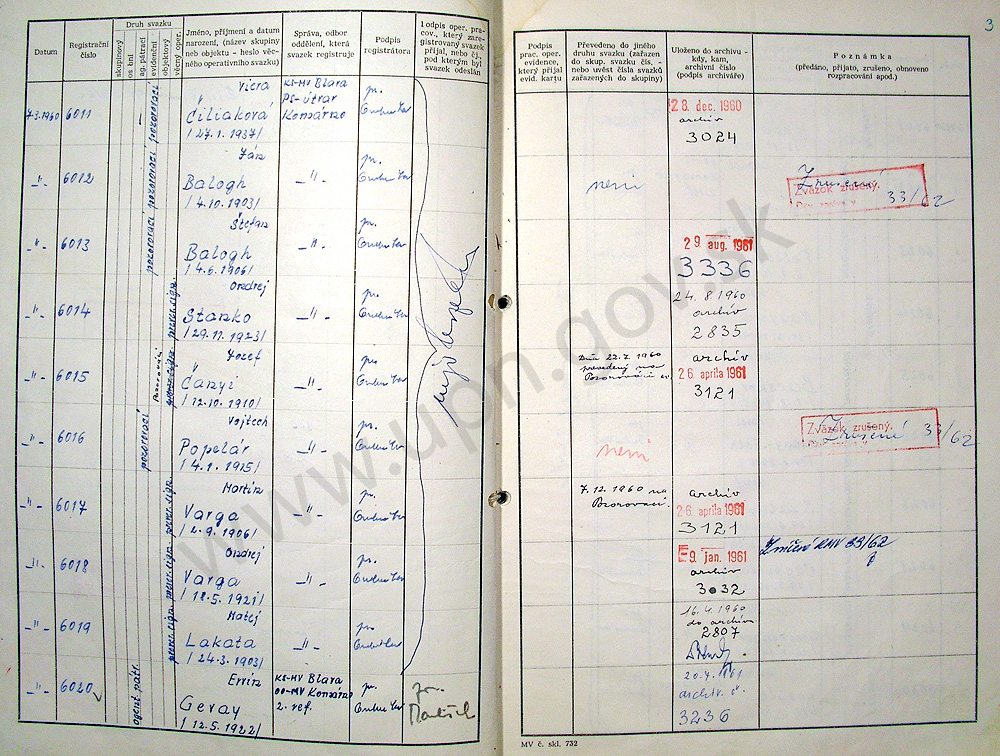 3
Datum
Registrační číslo
Druh svazku
skupinový
os bní
ag. pátrací
evidenční
objektový
věcný oper.
Jméno, příjmení a datum
narození, (název skupiny
neb objektu - heslo věc-
ného operativního svazku)
Správa, odbor
oddělení, která
svazek registruje
Podpis
registrátora
Podpis oper. pra-
cov., který zare-
gistrovaný svazek
přijal, nebo čj.,
pod kterým byl
svazek odeslán
7.3.1960 6011 pozorovací Viera
Čiliaková
/27.1.1937/
KS-MV Blava
PS-útvar
Komárno
pr.
-"- 6012 pozorovací Ján
Balogh
/4.10.1903/
-"- pr.
-"- 6013 pozorovací Štefan
Balogh
/4.6.1906/
-"- pr.
-"- 6014 Ondrej
Stanko
/29.11.1923/
-"- pr.
-"- 6015 Pozorovací Jozef
Čanyi
/12.10.1910/
-"- pr.
-"- 6016 pozorovací Vojtech
Popelár
/4.1.1915/
-"- pr.
-"- 6017 Martin
Varga
/2.9.1906/
-"- pr.
-"- 6018 Ondrej
Varga
/18.5.1921/
-"- pr.
-"- 6019 Matej
Lakata
/24.3.1903/
-"- pr.
-"- 6020 agent. pátr. Ervín
Geray
/12.5.1922/
KS-MV Blava
OO-MV Komárno
2. ref.
pr.
Podpis
prac. oper.
evidence,
který přijal
evid. kartu
Převedeno do jiného
druhu svazku (zařazen
do skup. svazku čís. -
nebo uvést čísla svazků
zařazených do skupiny)
Uloženo do archivu -
kdy, kam,
archivní číslo
(podpis archiváře)
Poznámka
(předáno, přijato, zrušeno, obnoveno
rozpracování apod.)
28. dec. 1960
archív
3024
není
Zrušené
Zväzok zrušený.
33/62
29 aug. 1961
3336
24.8.1960
archív
2835
Dňa 22.7.1960
prevedený na
Pozorovací
archív
26 apríla 1961
3121
není
Zväzok zrušený.
Zrušené 33/62
7.12.1960 na
Pozorovací.
archív
26 apríla 1961
3121
9. jan. 1961
archív
3032
Zničený RMV 33/62
16.4.1960
do archívu
2807
20.4.1961
archív. č.
3236
MV č. skl. 732
www.upn.gov.sk